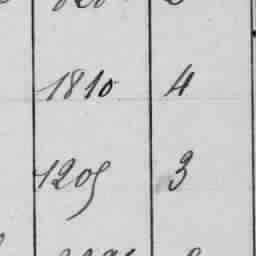 1810 4
1205 3